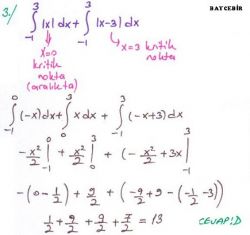 BATCEBİR
3./ ∫₋₁³ |x| dx + ∫₋₁³ |x-3| dx
x=0 kritik nokta (aralıkta)
x=3 kritik nokta
∫₋₁⁰ (-x)dx + ∫₀³ x dx + ∫₋₁³ (-x+3)dx
-x²/2 |₋₁⁰ + x²/2 |₀³ + (-x²/2 + 3x |₋₁³
-(0-1/2) + 9/2 + (-9/2+9 - (-1/2-3))
1/2 + 9/2 + 9/2 + 7/2 = 13 CEVAP D